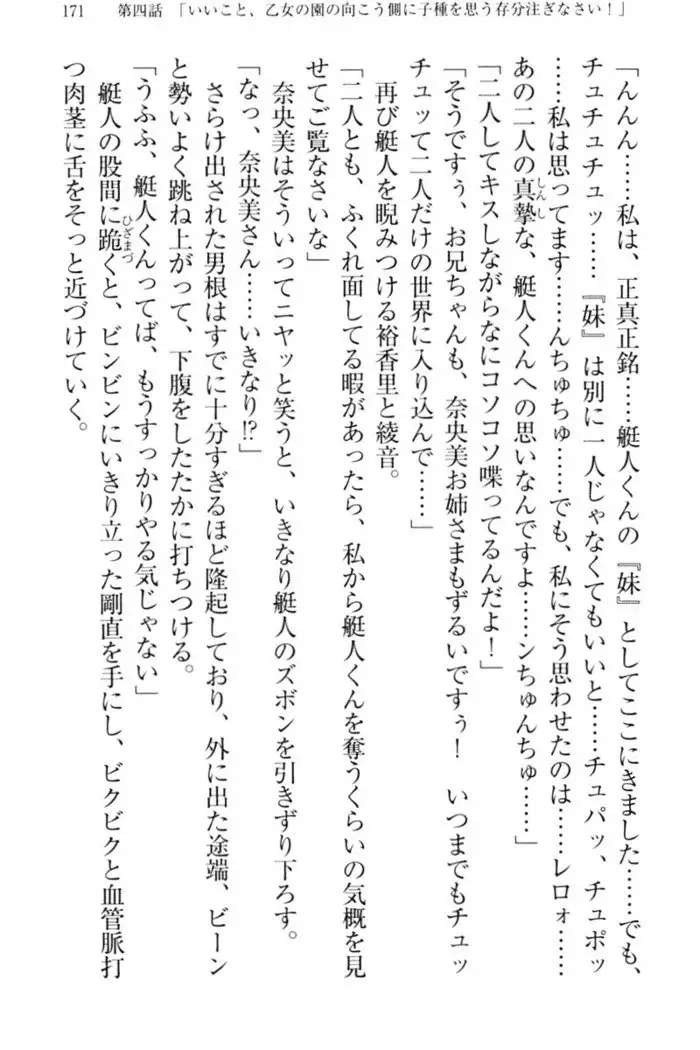 171　第四話　「いいこと、乙女の園の向こう側に子種を思う存分注ぎなさい！」
「んんん……私は、正真正銘……艇人くんの『妹』としてここにきました……でも、
チュチュチュッ……『妹』は別に一人じゃなくてもいいと……チュパッ、チュポッ
……私は思ってます……んちゅちゅ……でも、私にそう思わせたのは……レロォ……
あの二人の真摯な、艇人くんへの思いなんですよ……ンちゅんちゅ……」
「二人してキスしながらなにコソコソ喋ってるんだよ！」
「そうですぅ、お兄ちゃんも、奈央美お姉さまもずるいですぅ！　いつまでもチュッ
チュッて二人だけの世界に入り込んで……」
再び艇人を睨みつける裕香里と綾音。
「二人とも、ふくれ面してる暇があったら、私から艇人くんを奪うくらいの気概を見
せてご覧なさいな」
奈央美はそういってニヤッと笑うと、いきなり艇人のズボンを引きずり下ろす。
「なっ、奈央美さん……いきなり!?」
さらけ出された男根はすでに十分すぎるほど隆起しており、外に出た途端、ビーン
と勢いよく跳ね上がって、下腹をしたたかに打ちつける。
「うふふ、艇人くんってば、もうすっかりやる気じゃない」
艇人の股間に跪くと、ビンビンにいきり立った剛直を手にし、ビクビクと血管脈打
つ肉茎に舌をそっと近づけていく。